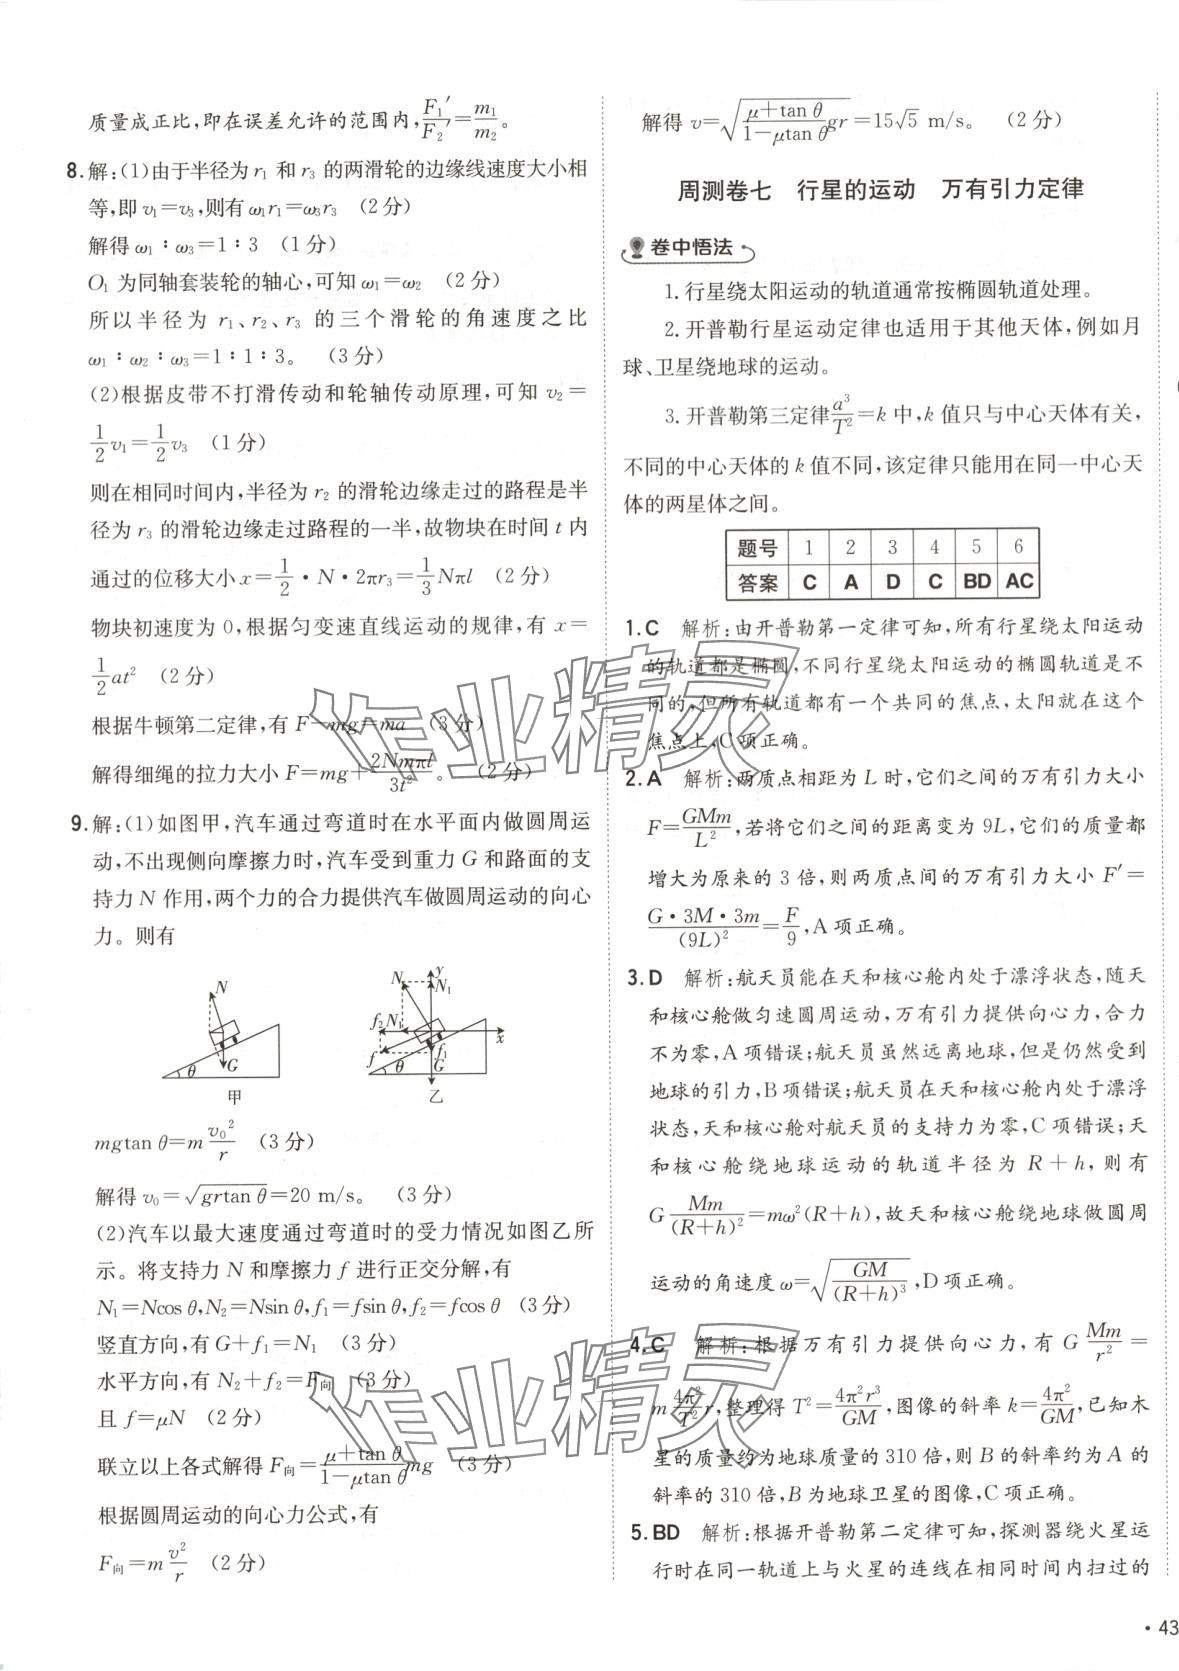 质量成正比,即在误差允许的范围内,F₁′/F₂′=m₁/m₂。
8.解:(1)由于半径为 r₁ 和 r₃ 的两滑轮的边缘线速度大小相
等,即 v₁=v₃,则有 ω₁r₁=ω₃r₃ (2分)
解得 ω₁∶ω₃=1∶3 (1分)
O₁ 为同轴套装轮的轴心,可知 ω₁=ω₂ (2分)
所以半径为 r₁、r₂、r₃ 的三个滑轮的角速度之比
ω₁∶ω₂∶ω₃=1∶1∶3。 (3分)
(2)根据皮带不打滑传动和轮轴传动原理,可知 v₂=
1/2 v₁=1/2 v₃ (1分)
则在相同时间内,半径为 r₂ 的滑轮边缘走过的路程是半
径为 r₃ 的滑轮边缘走过路程的一半,故物块在时间 t 内
通过的位移大小 x=1/2·N·2πr₃=1/3 Nπl (2分)
物块初速度为 0,根据匀变速直线运动的规律,有 x=
1/2 at² (2分)
根据牛顿第二定律,有 F−mg=ma (3分)
解得细绳的拉力大小 F=mg+2Nmπl/3t²。 (2分)
9.解:(1)如图甲,汽车通过弯道时在水平面内做圆周运
动,不出现侧向摩擦力时,汽车受到重力 G 和路面的支
持力 N 作用,两个力的合力提供汽车做圆周运动的向心
力。则有
N
G
θ
甲
N
y
N₁
f₂ N₂
x
f
f₁
G
θ
乙
mgtan θ=m v₀²/r (3分)
解得 v₀=√(grtan θ)=20 m/s。 (3分)
(2)汽车以最大速度通过弯道时的受力情况如图乙所
示。将支持力 N 和摩擦力 f 进行正交分解,有
N₁=Ncos θ,N₂=Nsin θ,f₁=fsin θ,f₂=fcos θ (3分)
竖直方向,有 G+f₁=N₁ (3分)
水平方向,有 N₂+f₂=F向 (3分)
且 f=μN (2分)
联立以上各式解得 F向=(μ+tan θ)/(1−μtan θ) mg (3分)
根据圆周运动的向心力公式,有
F向=m v²/r (2分)
解得 v=√((μ+tan θ)/(1−μtan θ) gr)=15√5 m/s。 (2分)
周测卷七 行星的运动 万有引力定律
卷中悟法
1.行星绕太阳运动的轨道通常按椭圆轨道处理。
2.开普勒行星运动定律也适用于其他天体,例如月
球、卫星绕地球的运动。
3.开普勒第三定律 a³/T²=k 中,k 值只与中心天体有关,
不同的中心天体的 k 值不同,该定律只能用在同一中心天
体的两星体之间。
题号 1 2 3 4 5 6
答案 C A D C BD AC
1.C 解析:由开普勒第一定律可知,所有行星绕太阳运动
的轨道都是椭圆,不同行星绕太阳运动的椭圆轨道是不
同的,但所有轨道都有一个共同的焦点,太阳就在这个
焦点上,C项正确。
2.A 解析:两质点相距为 L 时,它们之间的万有引力大小
F=GMm/L²,若将它们之间的距离变为 9L,它们的质量都
增大为原来的 3 倍,则两质点间的万有引力大小 F′=
G·3M·3m/(9L)²=F/9,A项正确。
3.D 解析:航天员能在天和核心舱内处于漂浮状态,随天
和核心舱做匀速圆周运动,万有引力提供向心力,合力
不为零,A项错误;航天员虽然远离地球,但是仍然受到
地球的引力,B项错误;航天员在天和核心舱内处于漂浮
状态,天和核心舱对航天员的支持力为零,C项错误;天
和核心舱绕地球运动的轨道半径为 R+h,则有
G Mm/(R+h)²=mω²(R+h),故天和核心舱绕地球做圆周
运动的角速度 ω=√(GM/(R+h)³),D项正确。
4.C 解析:根据万有引力提供向心力,有 G Mm/r²=
m 4π²/T² r,整理得 T²=4π²r³/GM,图像的斜率 k=4π²/GM,已知木
星的质量约为地球质量的 310 倍,则 B 的斜率约为 A 的
斜率的 310 倍,B 为地球卫星的图像,C项正确。
5.BD 解析:根据开普勒第二定律可知,探测器绕火星运
行时在同一轨道上与火星的连线在相同时间内扫过的
· 43
作业精灵
作业精灵